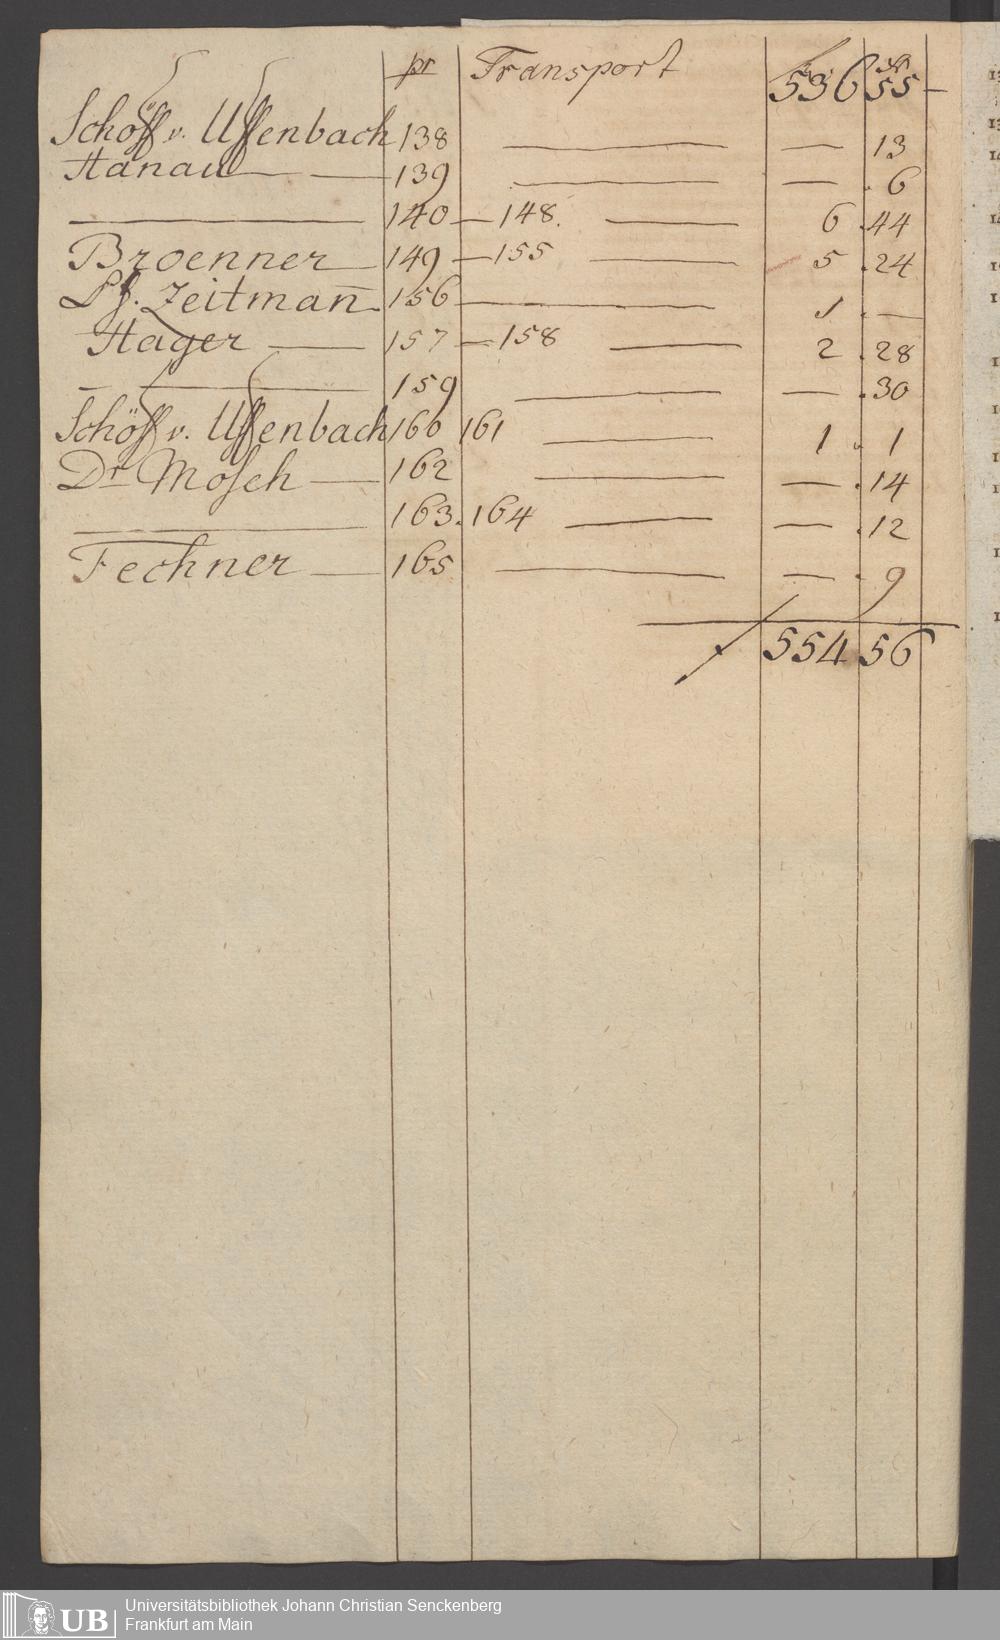 pr Transport 536 55 —
Schöff v. Uffenbach 138 — — 13
Hanau — 139 — — . 6
— 140 — 148. — 6 . 44
Broenner — 149 — 155 — 5 . 24
Zeitman̅ 156 — 1 . —
Hager — 157 — 158 — 2 . 28
— 159 — — . 30
Schöff v. Uffenbach 160 161 — 1 . 1
Dr Mosch — 162 — — . 14
— 163. 164 — — . 12
Fechner — 165 — — . 9
554 56
UB
Universitätsbibliothek Johann Christian Senckenberg
Frankfurt am Main